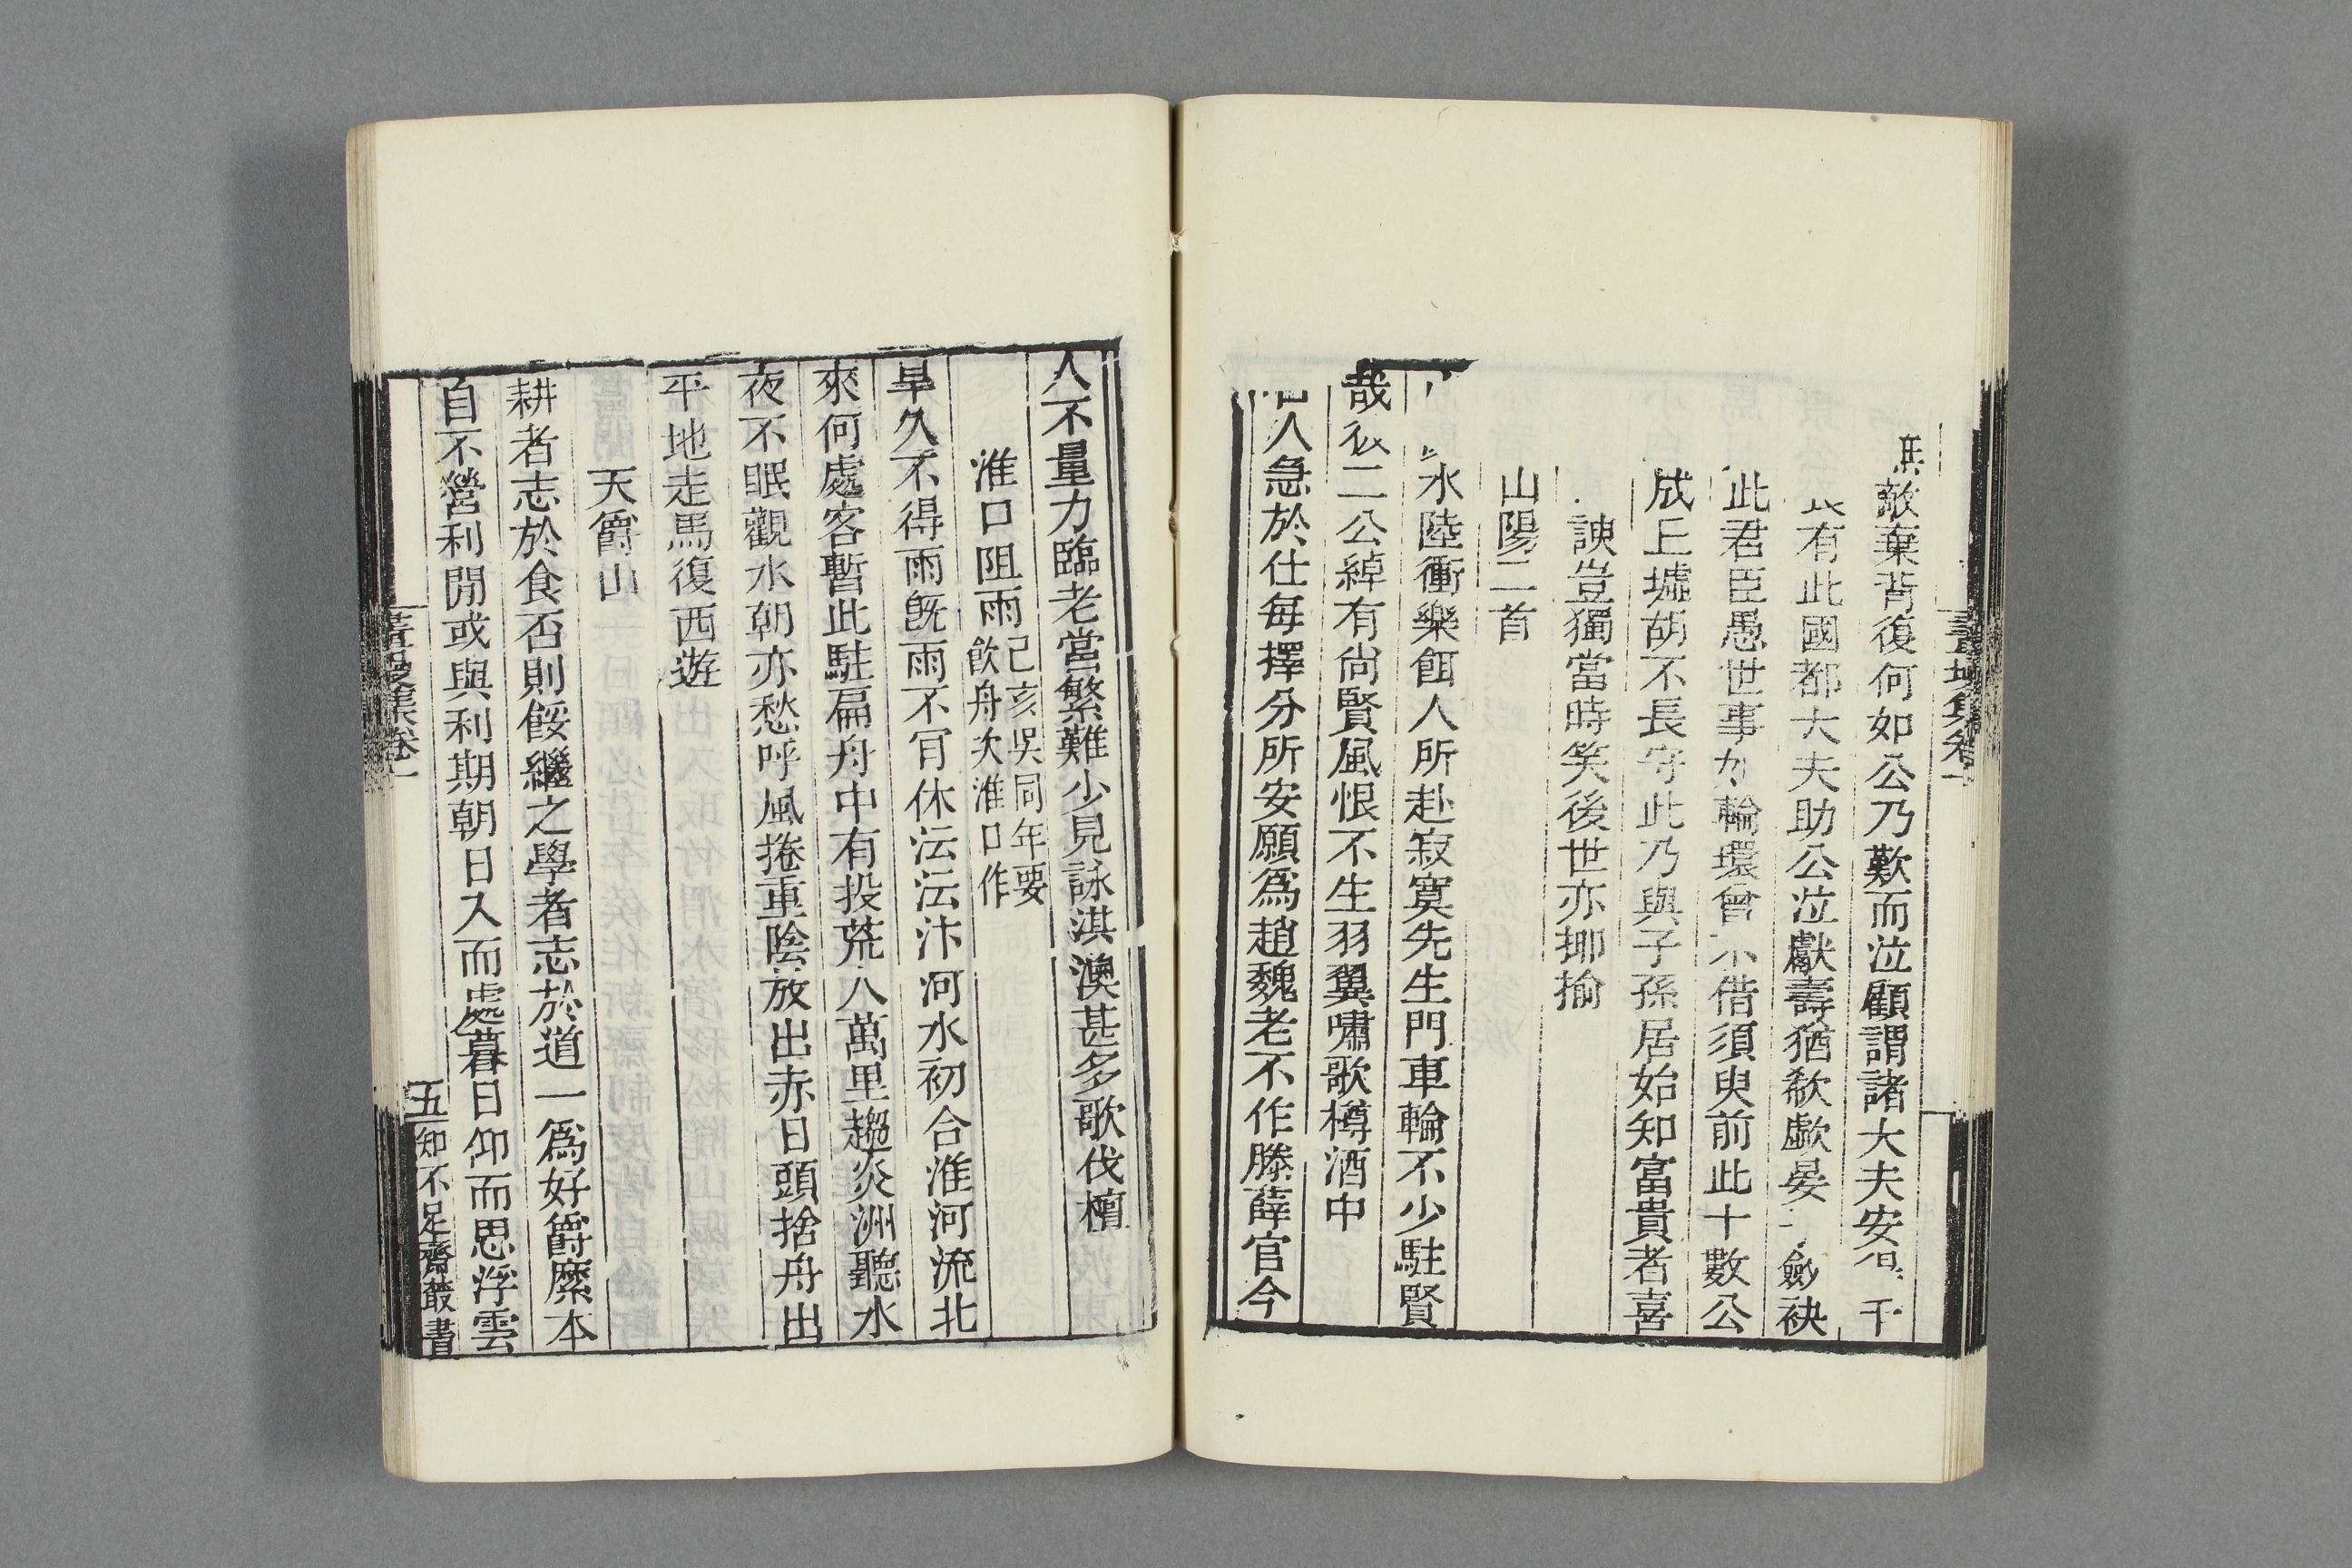 敵棄背復何如公乃歎而泣顧謂諸大夫安
有此國都大夫助公泣獻壽猶欷歔晏 斂袂
此君臣愚世事 輪環曾不借須臾前此十數公
成丘墟胡不長守此乃與子孫居始知富貴者喜
諛豈獨當時笑後世亦揶揄
山陽二首
水陸衝樂餌人所赴寂寞先生門車輪不少駐賢
哉 二公綽有尙賢風恨不生羽翼嘯歌樽酒中
人急於仕每擇分所安願爲趙魏老不作滕薛官今
人不量力臨老當繁難少見詠淇澳甚多歌伐檀
淮口阻雨己亥吳同年要飮舟次淮口作
旱久不得雨旣雨不肎休沄沄汴河水初合淮河流北
來何處客暫此駐扁舟中有投荒人萬里趨炎洲聽水
夜不眠觀水朝亦愁呼風捲重陰放出赤日頭捨舟出
平地走馬復西遊
天爵山
耕者志於食否則餒繼之學者志於道一爲好爵縻本
自不營利閒或與利期朝日入而處暮日仰而思浮雲
五
知不足齋叢書